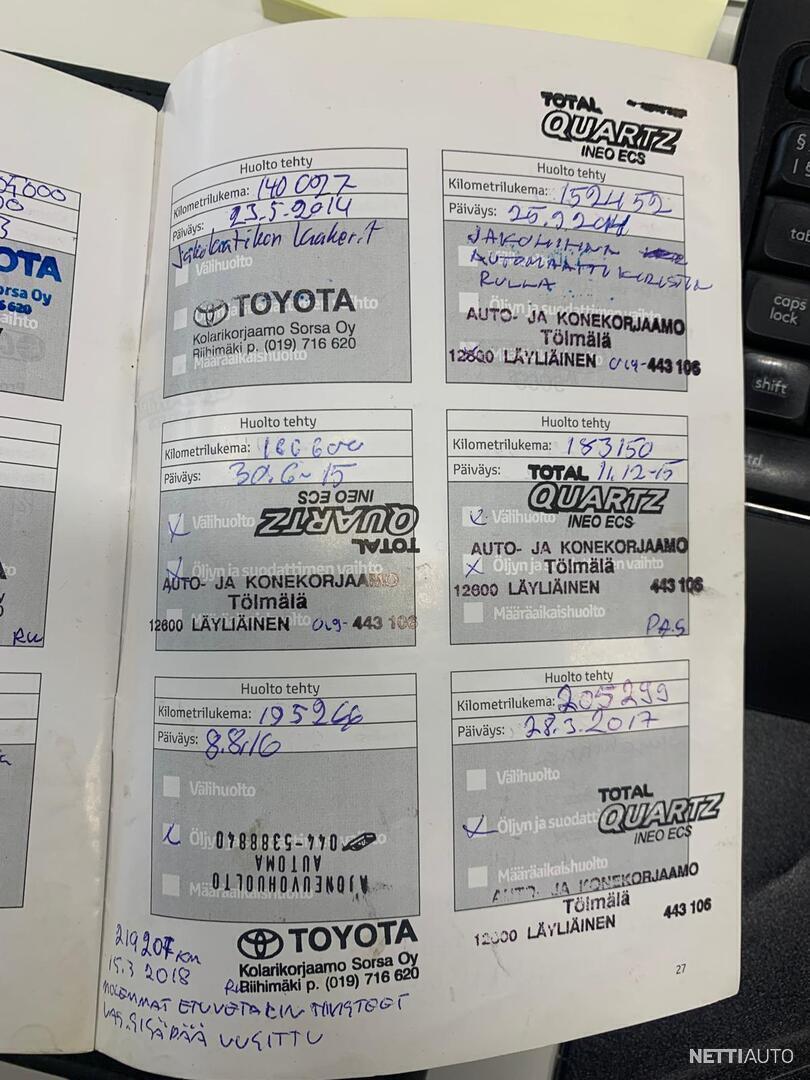 TOTAL
QUARTZ
INEO ECS
Huolto tehty
Kilometrilukema: 140 027
Päiväys: 23.5.2014
Välihuolto
TOYOTA
Kolarikorjaamo Sorsa Oy
Riihimäki p. (019) 716 620
Määräaikaishuolto
Huolto tehty
Kilometrilukema: 152452
Päiväys:
JAKOHIHNA
AUTOMAATTI KIRISTIN
RULLA
AUTO- JA KONEKORJAAMO
Tölmälä
12600 LÄYLIÄINEN 019-443 106
Huolto tehty
Kilometrilukema:
Päiväys: 30.6-15
TOTAL
QUARTZ
INEO ECS
Välihuolto
Öljyn ja suodattimen vaihto
AUTO- JA KONEKORJAAMO
Tölmälä
12600 LÄYLIÄINEN 019-443 106
Huolto tehty
Kilometrilukema: 183150
Päiväys: 11.12-15
TOTAL
QUARTZ
INEO ECS
Välihuolto
AUTO- JA KONEKORJAAMO
Öljyn ja suodattimen vaihto
Tölmälä
12600 LÄYLIÄINEN 443 106
Määräaikaishuolto
PA.S
Huolto tehty
Kilometrilukema: 195266
Päiväys: 8.8.16
Välihuolto
Öljyn ja suodattimen vaihto
AJONEUVOHUOLTO
AUTOMA
044-5388840
Määräaikaishuolto
TOYOTA
Kolarikorjaamo Sorsa Oy
Riihimäki p. (019) 716 620
Huolto tehty
Kilometrilukema: 205299
Päiväys: 28.3.2017
Välihuolto
TOTAL
QUARTZ
INEO ECS
Öljyn ja suodatt
Määräaikaishuolto
AUTO- JA KONEKORJAAMO
Tölmälä
12600 LÄYLIÄINEN 443 106
219207 KM
15.3 2018
MOLEMMAT ETUVETARIN TIIVISTEET
VAS. SISÄPÄÄ UUSITTU
27
TOYOTA
caps
lock
shift
NETTIAUTO